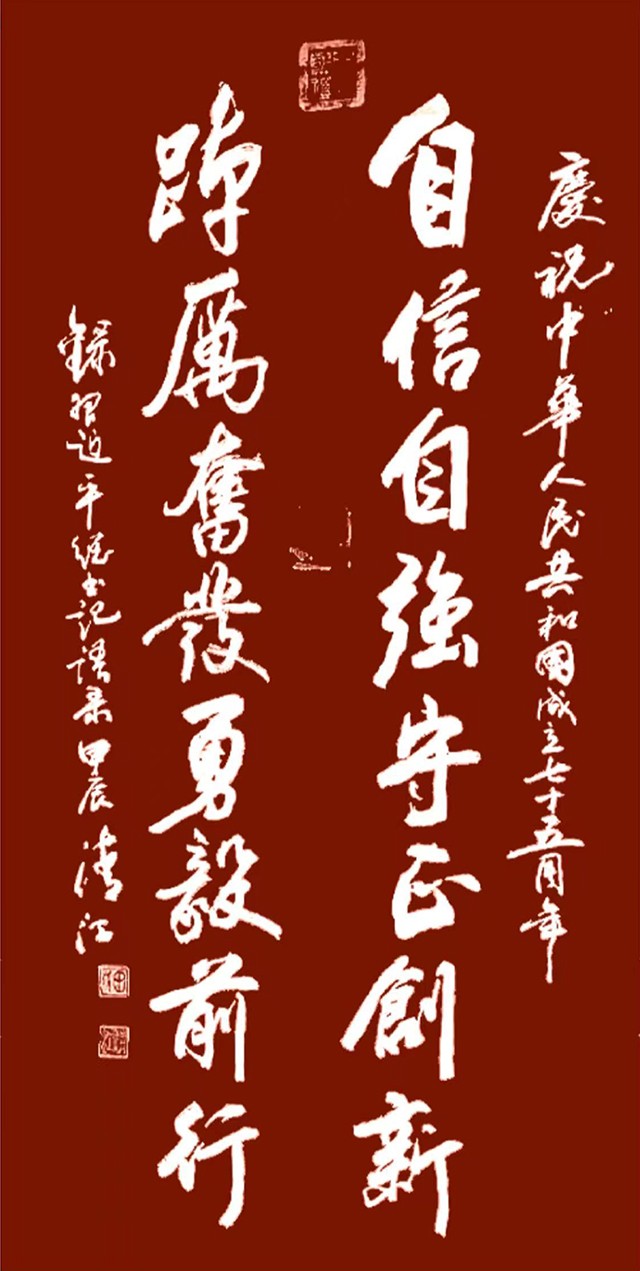 慶祝中華人民共和國成立七十五周年
自信自強守正創新
踔厲奮發勇毅前行
錄習近平總书記語录甲辰清江